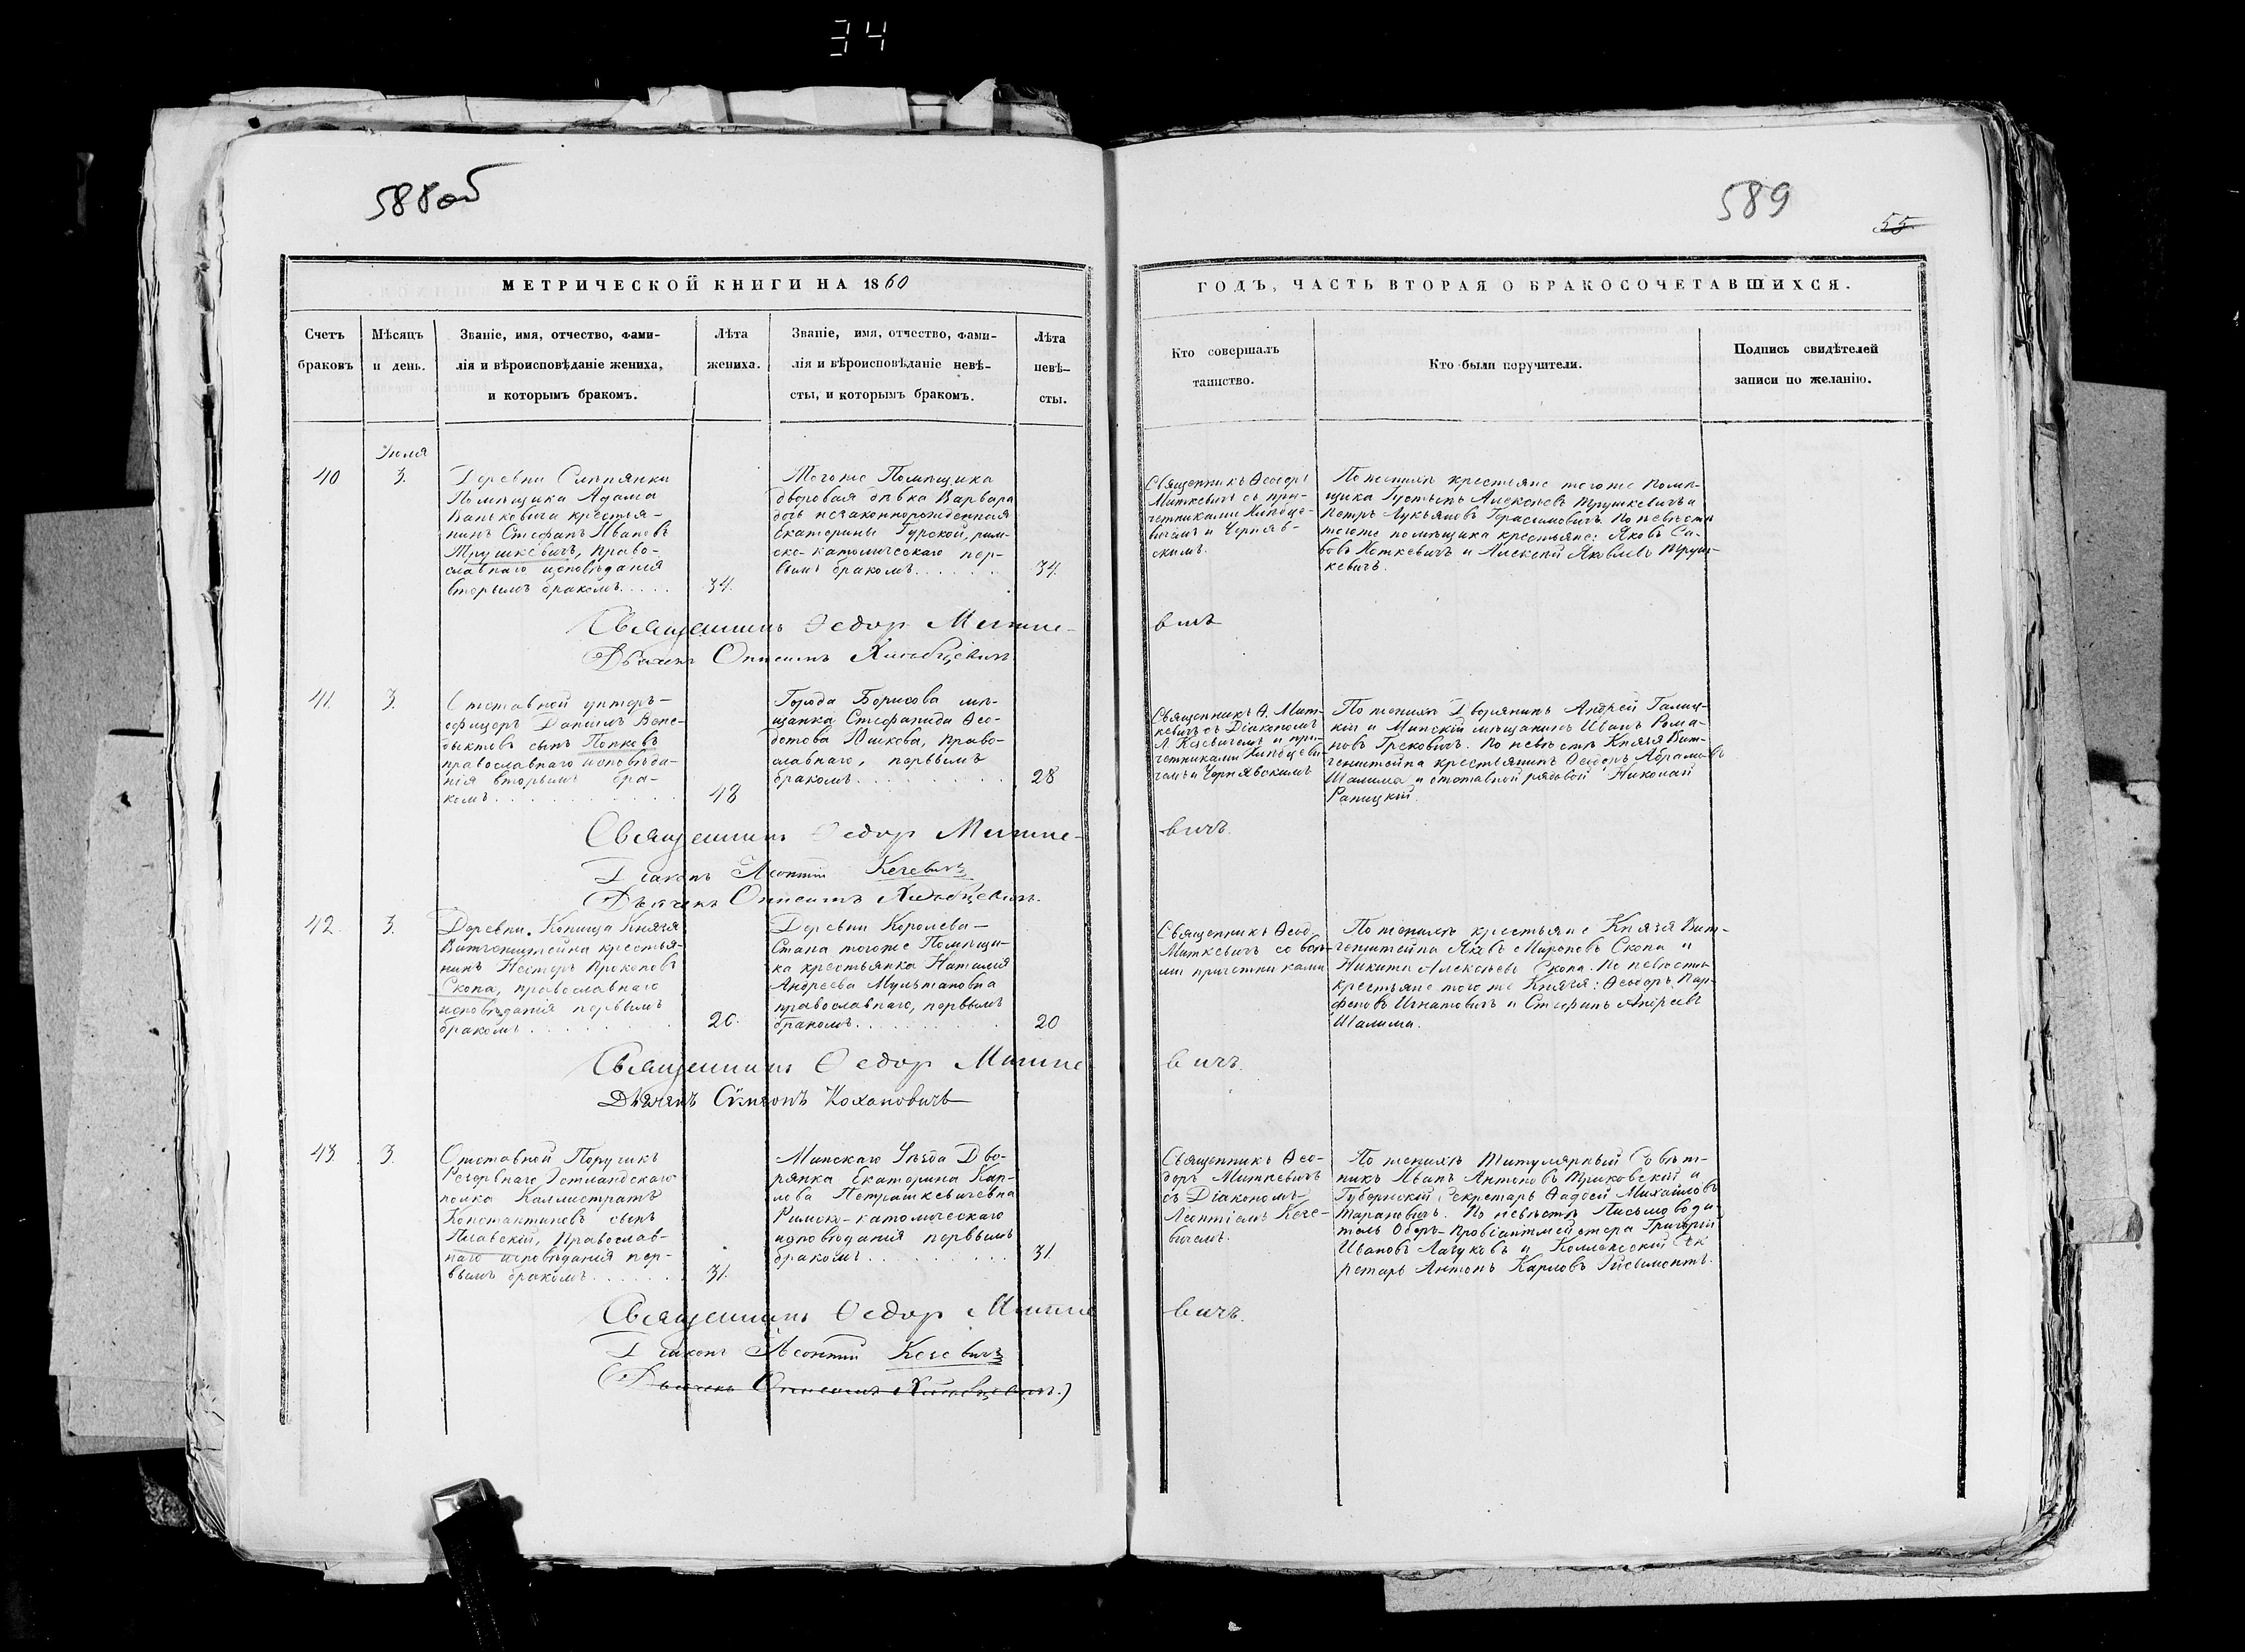 34
588об
589
55
МЕТРИЧЕСКОЙ КНИГИ НА 1860
ГОДЪ, ЧАСТЬ ВТОРАЯ О БРАКОСОЧЕТАВШИХСЯ.
Счетъ
браковъ
Мѣсяцъ
и день.
Званіе, имя, отчество, фами-
лія и вѣроисповѣданіе жениха,
и которымъ бракомъ.
Лѣта
жениха.
Званіе, имя, отчество, фами-
лія и вѣроисповѣданіе невѣ-
сты, и которымъ бракомъ.
Лѣта
невѣ-
сты.
Кто совершалъ
таинство.
Кто были поручители.
Подпись свидѣтелей
записи по желанію.
Іюля
40
3.
Деревни Слѣпянки
Помѣщика Адама
Ваньковича крестья-
нинъ Стефанъ Ивановъ
Трушкевичъ, право-
славнаго исповѣданія
вторымъ бракомъ.....
34.
Тогоже Помѣщика
дворовая дѣвка Варвара
дочь незаконнорожденная
Екатерины Гурской, рим-
ско-католическаго пер-
вымъ бракомъ......
34.
Священникъ Ѳеодоръ
Миткевичъ съ при-
четниками Хлѣбце-
вичемъ и Черняв-
скимъ.
По женихѣ крестьяне тогоже помѣ-
щика Густынъ Алексѣевъ Трушкевичъ и
Петръ Лукьяновъ Герасимовичъ. По невѣстѣ
тогоже помѣщика крестьяне: Яковъ Са-
вовъ Хоткевичъ и Алексѣй Яковлевъ Труш-
кевичъ.
Священникъ Ѳедор Митке-
вичъ
Дьячекъ Онисимъ Хлѣбцевичъ
41.
3.
Отставной унтеръ-
офицеръ Даніилъ Вене-
диктовъ сынъ Попковъ
православнаго исповѣда-
нія вторымъ бра-
комъ.
48
Города Борисова мѣ-
щанка Стефанида Ѳео-
дотова Юшкова, право-
славнаго, первымъ
бракомъ.
28
Священникъ Ѳ. Мит-
кевичъ съ Діакономъ
Л. Кечевичемъ и при-
четниками Хлѣбцеви-
чемъ и Чернявскимъ
По женихѣ Дворянинъ Андрей Галиц-
кій и Минскій мѣщанинъ Иванъ Рома-
новъ Грековичъ. По невѣстѣ Князя Вит-
генштейна крестьянинъ Ѳеодоръ Абрамовъ
Шалима и отставной рядовой Николай
Рапицкій.
Священникъ Ѳедор Митке-
вичъ.
Діаконъ Леонтій Кечевичъ
Дьячекъ Онисимъ Хлѣбцевичъ.
42.
3.
Деревни Копища Князя
Витгенштейна крестья-
нинъ Несторъ Прокоповъ
Скопа, православнаго
исповѣданія первымъ
бракомъ
20.
Деревни Королева-
Стана тогоже Помѣщи-
ка крестьянка Наталія
Андреева Мультановна
православнаго, первымъ
бракомъ.
20
Священникъ Ѳеод.
Миткевичъ со всѣ-
ми причетниками
По женихѣ крестьяне Князя Вит-
генштейна Яковъ Мироновъ Скопа и
Никита Алексѣевъ Скопа. По невѣстѣ
крестьяне тогоже Князя: Ѳеодоръ Пар-
феновъ Игнатовичъ и Стефанъ Андреевъ
Шалима.
Священникъ Ѳедор Митке
вичъ.
Дьячекъ Сѵмеонъ Кохановичъ
43.
3.
Отставной Поручикъ
Резервнаго Эстляндскаго
полка Каллистратъ
Константиновъ сынъ
Плавскій, Православ-
наго исповѣданія пер-
вымъ бракомъ.
31.
Минскаго Уѣзда Дво-
рянка Екатерина Кар-
лова Петрашкевичевна
Римско-католическаго
исповѣданія первымъ
бракомъ.
31.
Священникъ Ѳео-
доръ Миткевичъ
съ Діакономъ
Леонтіемъ Кече-
вичемъ.
По женихѣ Титулярный Совѣт-
никъ Иванъ Антоновъ Триковскій и
Губернскій Секретарь Ѳадѣй Михайловъ
Тарановичъ. По невѣстѣ Письмоводи-
тель Оберъ-Провіантмейстера Григорій
Ивановъ Лагуковъ и Коллежскій Сек
ретарь Антонъ Карловъ Гисьмонтъ.
Священникъ Ѳедор Митке
вичъ.
Діаконъ Леонтій Кечевичъ
(Дьячекъ Онисимъ Хлѣбцевичъ.)